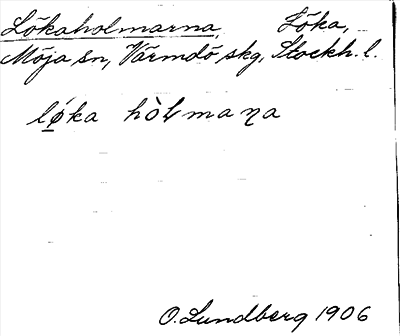 Lökaholmarna, Löka,
Möja sn, Värmdö skg, Stockh. l.
lǿ̱ka hòɫmaꞑa
O. Lundberg 1906